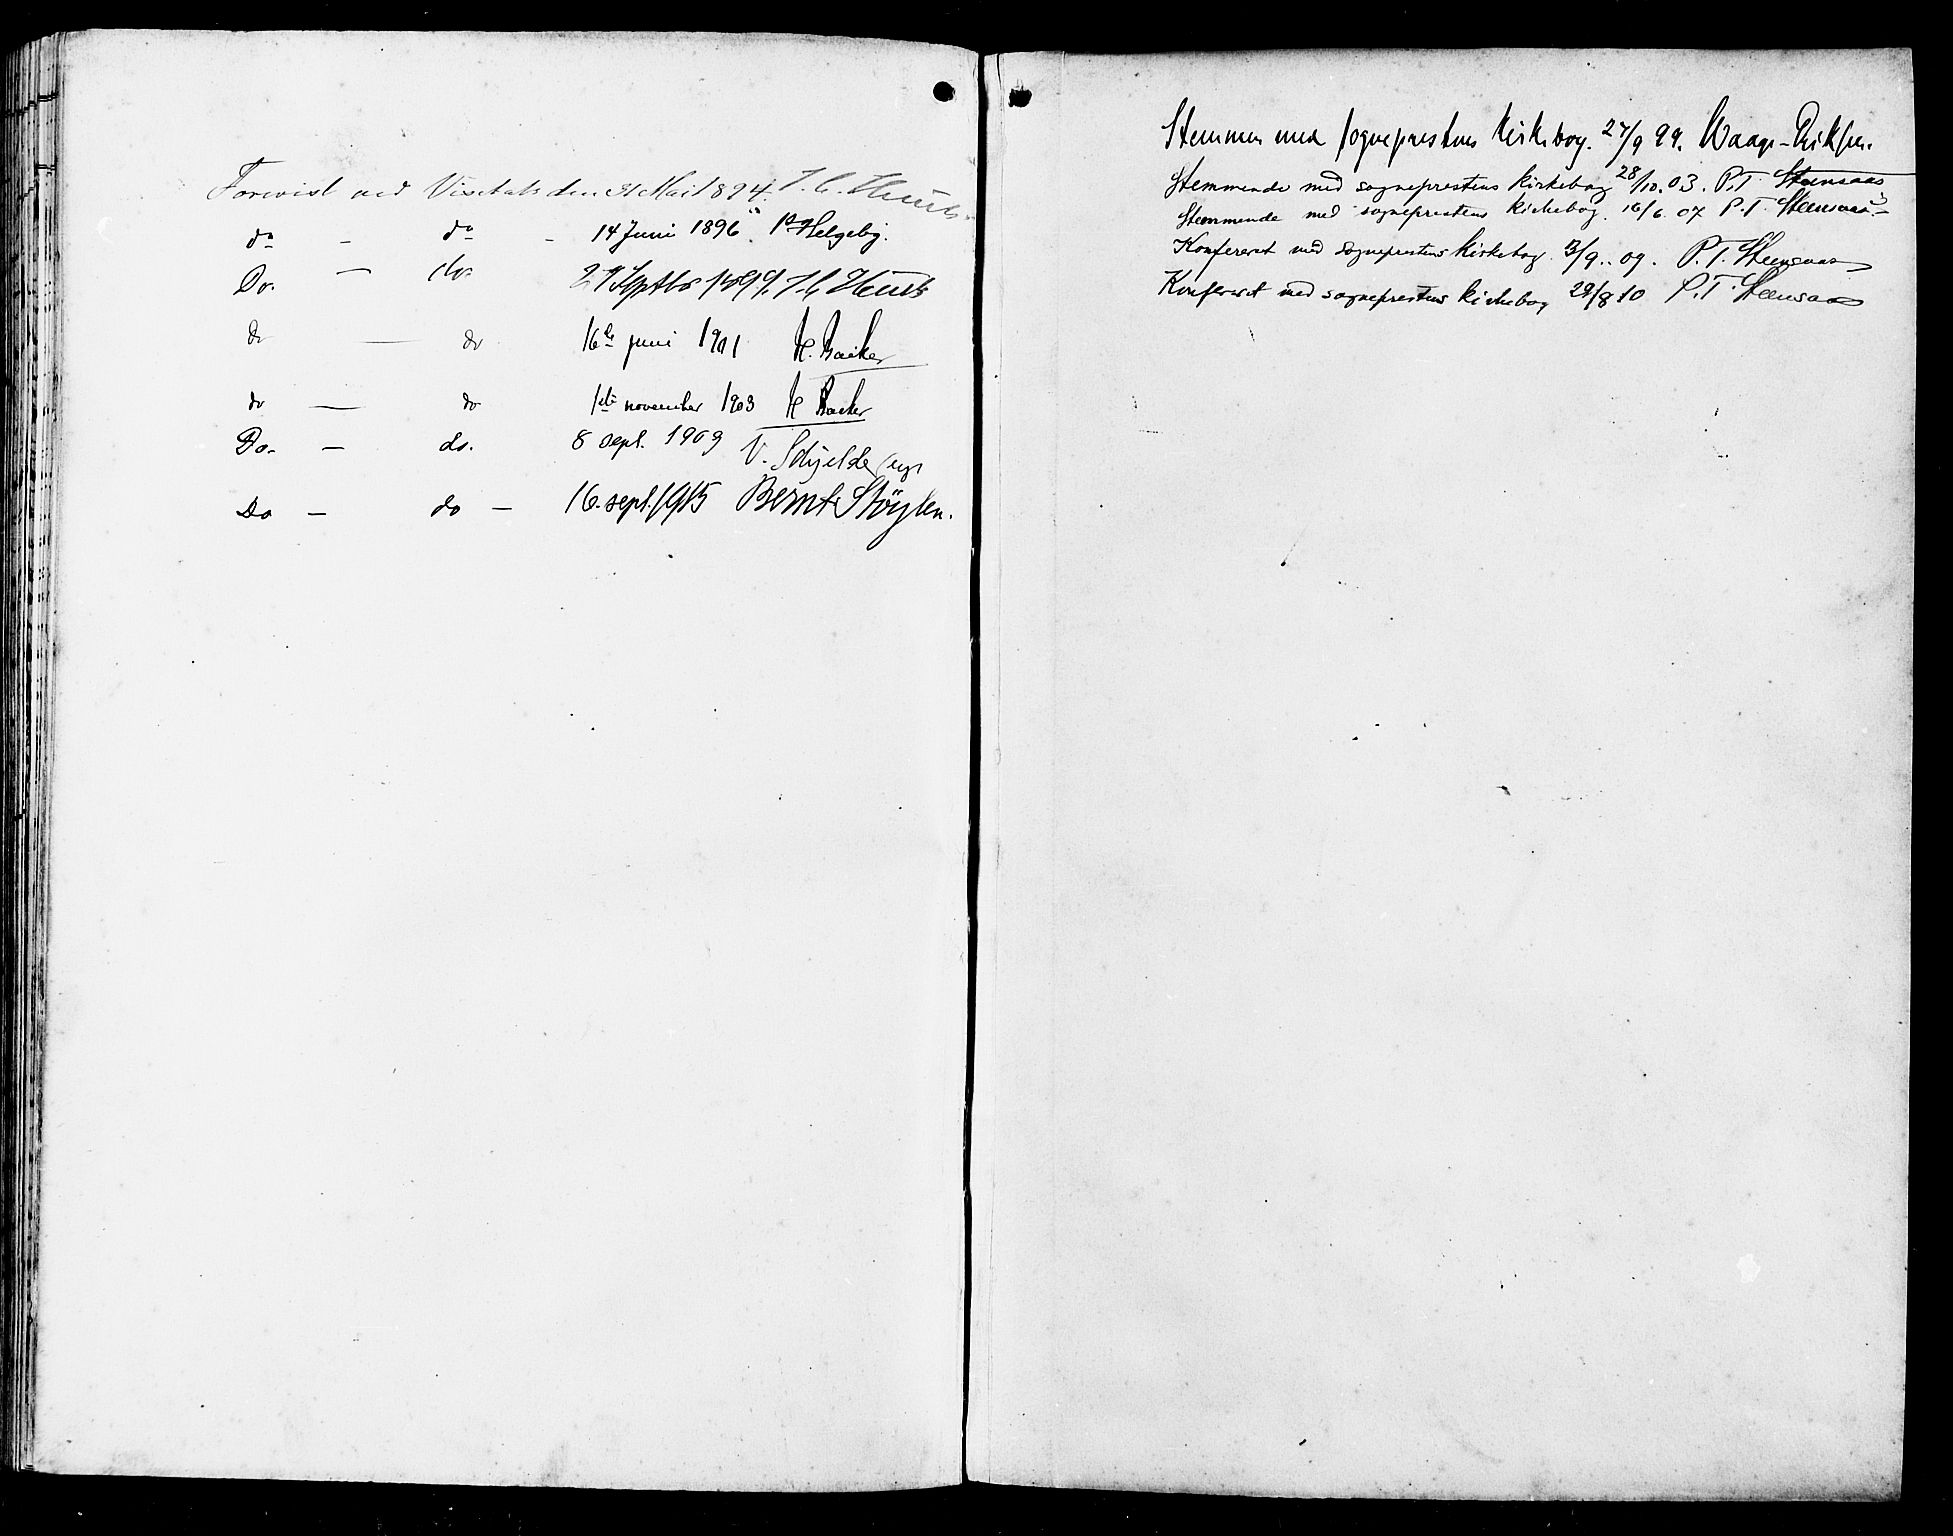 Forevist ved Visitats den 31 Mai 1894. J. C. Heuch
do - do - 14 Juni 1896. P. Helgeby.
Do. - do. 27 Septbr 1899. J. C. Heuch
do — do 16de juni 1901 H. Backer
do — do 1ste november 1903 H Backer
Do. - do. 8 sept. 1909 V. Schjelderup
Do - do - 16. sept. 1915 Bernt Støylen.
Stemmer med sogneprestens kirkebog. 27/9 99. Waage-Eriksen.
Stemmende med sogneprestens kirkebog 28/10.03. P.T. Steensaas
Stemmende med sogneprestens kirkebog. 16/6 07 P.T. Steensaas
Konfereret med sogneprestens kirkebog 3/9. 09. P.T. Steensaas
Konfereret med sogneprestens kirkebog 29/8 10 P.T. Steensaas